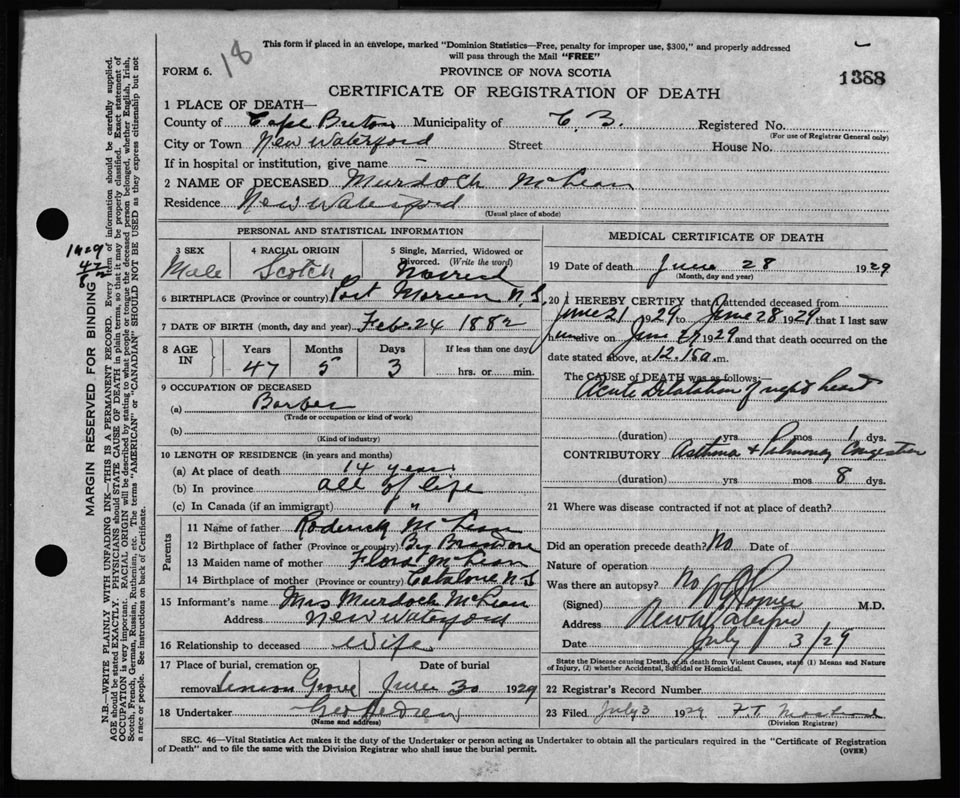 18
This form if placed in an envelope, marked "Dominion Statistics—Free, penalty for improper use, $300," and properly addressed
will pass through the Mail "FREE"
FORM 6.
PROVINCE OF NOVA SCOTIA
1388
CERTIFICATE OF REGISTRATION OF DEATH
1 PLACE OF DEATH—
County of Cape Breton Municipality of C. B. Registered No.
(For use of Registrar General only)
City or Town New Waterford Street House No.
If in hospital or institution, give name —
2 NAME OF DECEASED Murdoch McLean
Residence New Waterford
(Usual place of abode)
PERSONAL AND STATISTICAL INFORMATION
3 SEX 4 RACIAL ORIGIN 5 Single, Married, Widowed or Divorced. (Write the word)
Male Scotch Married
6 BIRTHPLACE (Province or country) Port Morien N.S.
7 DATE OF BIRTH (month, day and year) Feb 24 1882
8 AGE IN Years Months Days If less than one day
47 5 3 hrs. or min.
9 OCCUPATION OF DECEASED
(a) Barber
(Trade or occupation or kind of work)
(b)
(Kind of industry)
10 LENGTH OF RESIDENCE (in years and months)
(a) At place of death 14 years
(b) In province all of life
(c) In Canada (if an immigrant) "
Parents
11 Name of father Roderick McLean
12 Birthplace of father (Province or country)
13 Maiden name of mother Flora McLean
14 Birthplace of mother (Province or country) Catalone N.S
15 Informant's name Mrs Murdoch McLean
Address New Waterford
16 Relationship to deceased Wife
17 Place of burial, cremation or removal Date of burial
Grove June 30 1929
18 Undertaker
(Name and address)
MEDICAL CERTIFICATE OF DEATH
19 Date of death June 28 1929
(Month, day and year)
20 I HEREBY CERTIFY that I attended deceased from
June 21 1929 to June 28 1929 that I last saw
him alive on June 27 1929 and that death occurred on the
date stated above, at 12.15 a.m.
The CAUSE of DEATH was as follows:—
Acute Dilatation of right heart
(duration) yrs mos 1 dys.
CONTRIBUTORY Asthma & Pulmonary Congestion
(duration) yrs mos 8 dys.
21 Where was disease contracted if not at place of death?
Did an operation precede death? No Date of
Nature of operation
Was there an autopsy? No
(Signed) M.D.
Address New Waterford
Date July 3/29
State the Disease causing Death, or in death from Violent Causes, state (1) Means and Nature
of Injury, (2) whether Accidental, Suicidal or Homicidal.
22 Registrar's Record Number
23 Filed July 3 1929
(Division Registrar)
SEC. 46—Vital Statistics Act makes it the duty of the Undertaker or person acting as Undertaker to obtain all the particulars required in the "Certificate of Registration
of Death" and to file the same with the Division Registrar who shall issue the burial permit.
(OVER)
MARGIN RESERVED FOR BINDING
N.B.—WRITE PLAINLY WITH UNFADING INK—THIS IS A PERMANENT RECORD. Every item of information should be carefully supplied.
AGE should be stated EXACTLY. PHYSICIANS should STATE CAUSE OF DEATH in plain terms, so that it may be properly classified. Exact statement of
OCCUPATION is very important. RACIAL ORIGIN will be described by stating to what people or tongue the deceased person belonged, whether English, Irish,
Scotch, French, German, Russian, Ruthenian, etc. The terms "AMERICAN" or "CANADIAN" SHOULD NOT BE USED as they express citizenship but not
a race or people. See instructions on back of Certificate.